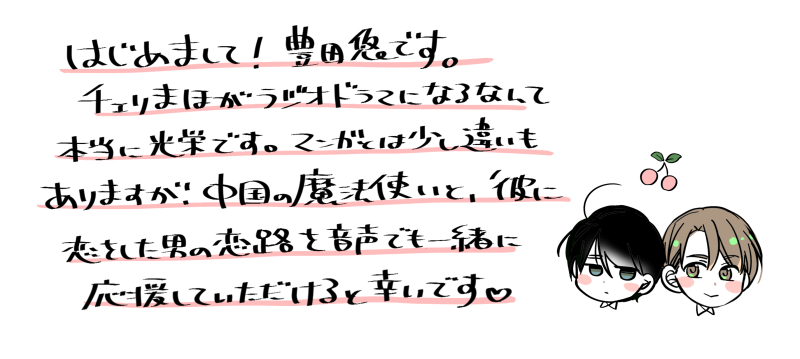 はじめまして！豊田悠です。
チェリまほがラジオドラマになるなんて
本当に光栄です。マンガとは少し違いも
ありますが！中国の魔法使いと、彼に
恋をした男の恋路を音声でも一緒に
応援していただけると幸いです♡